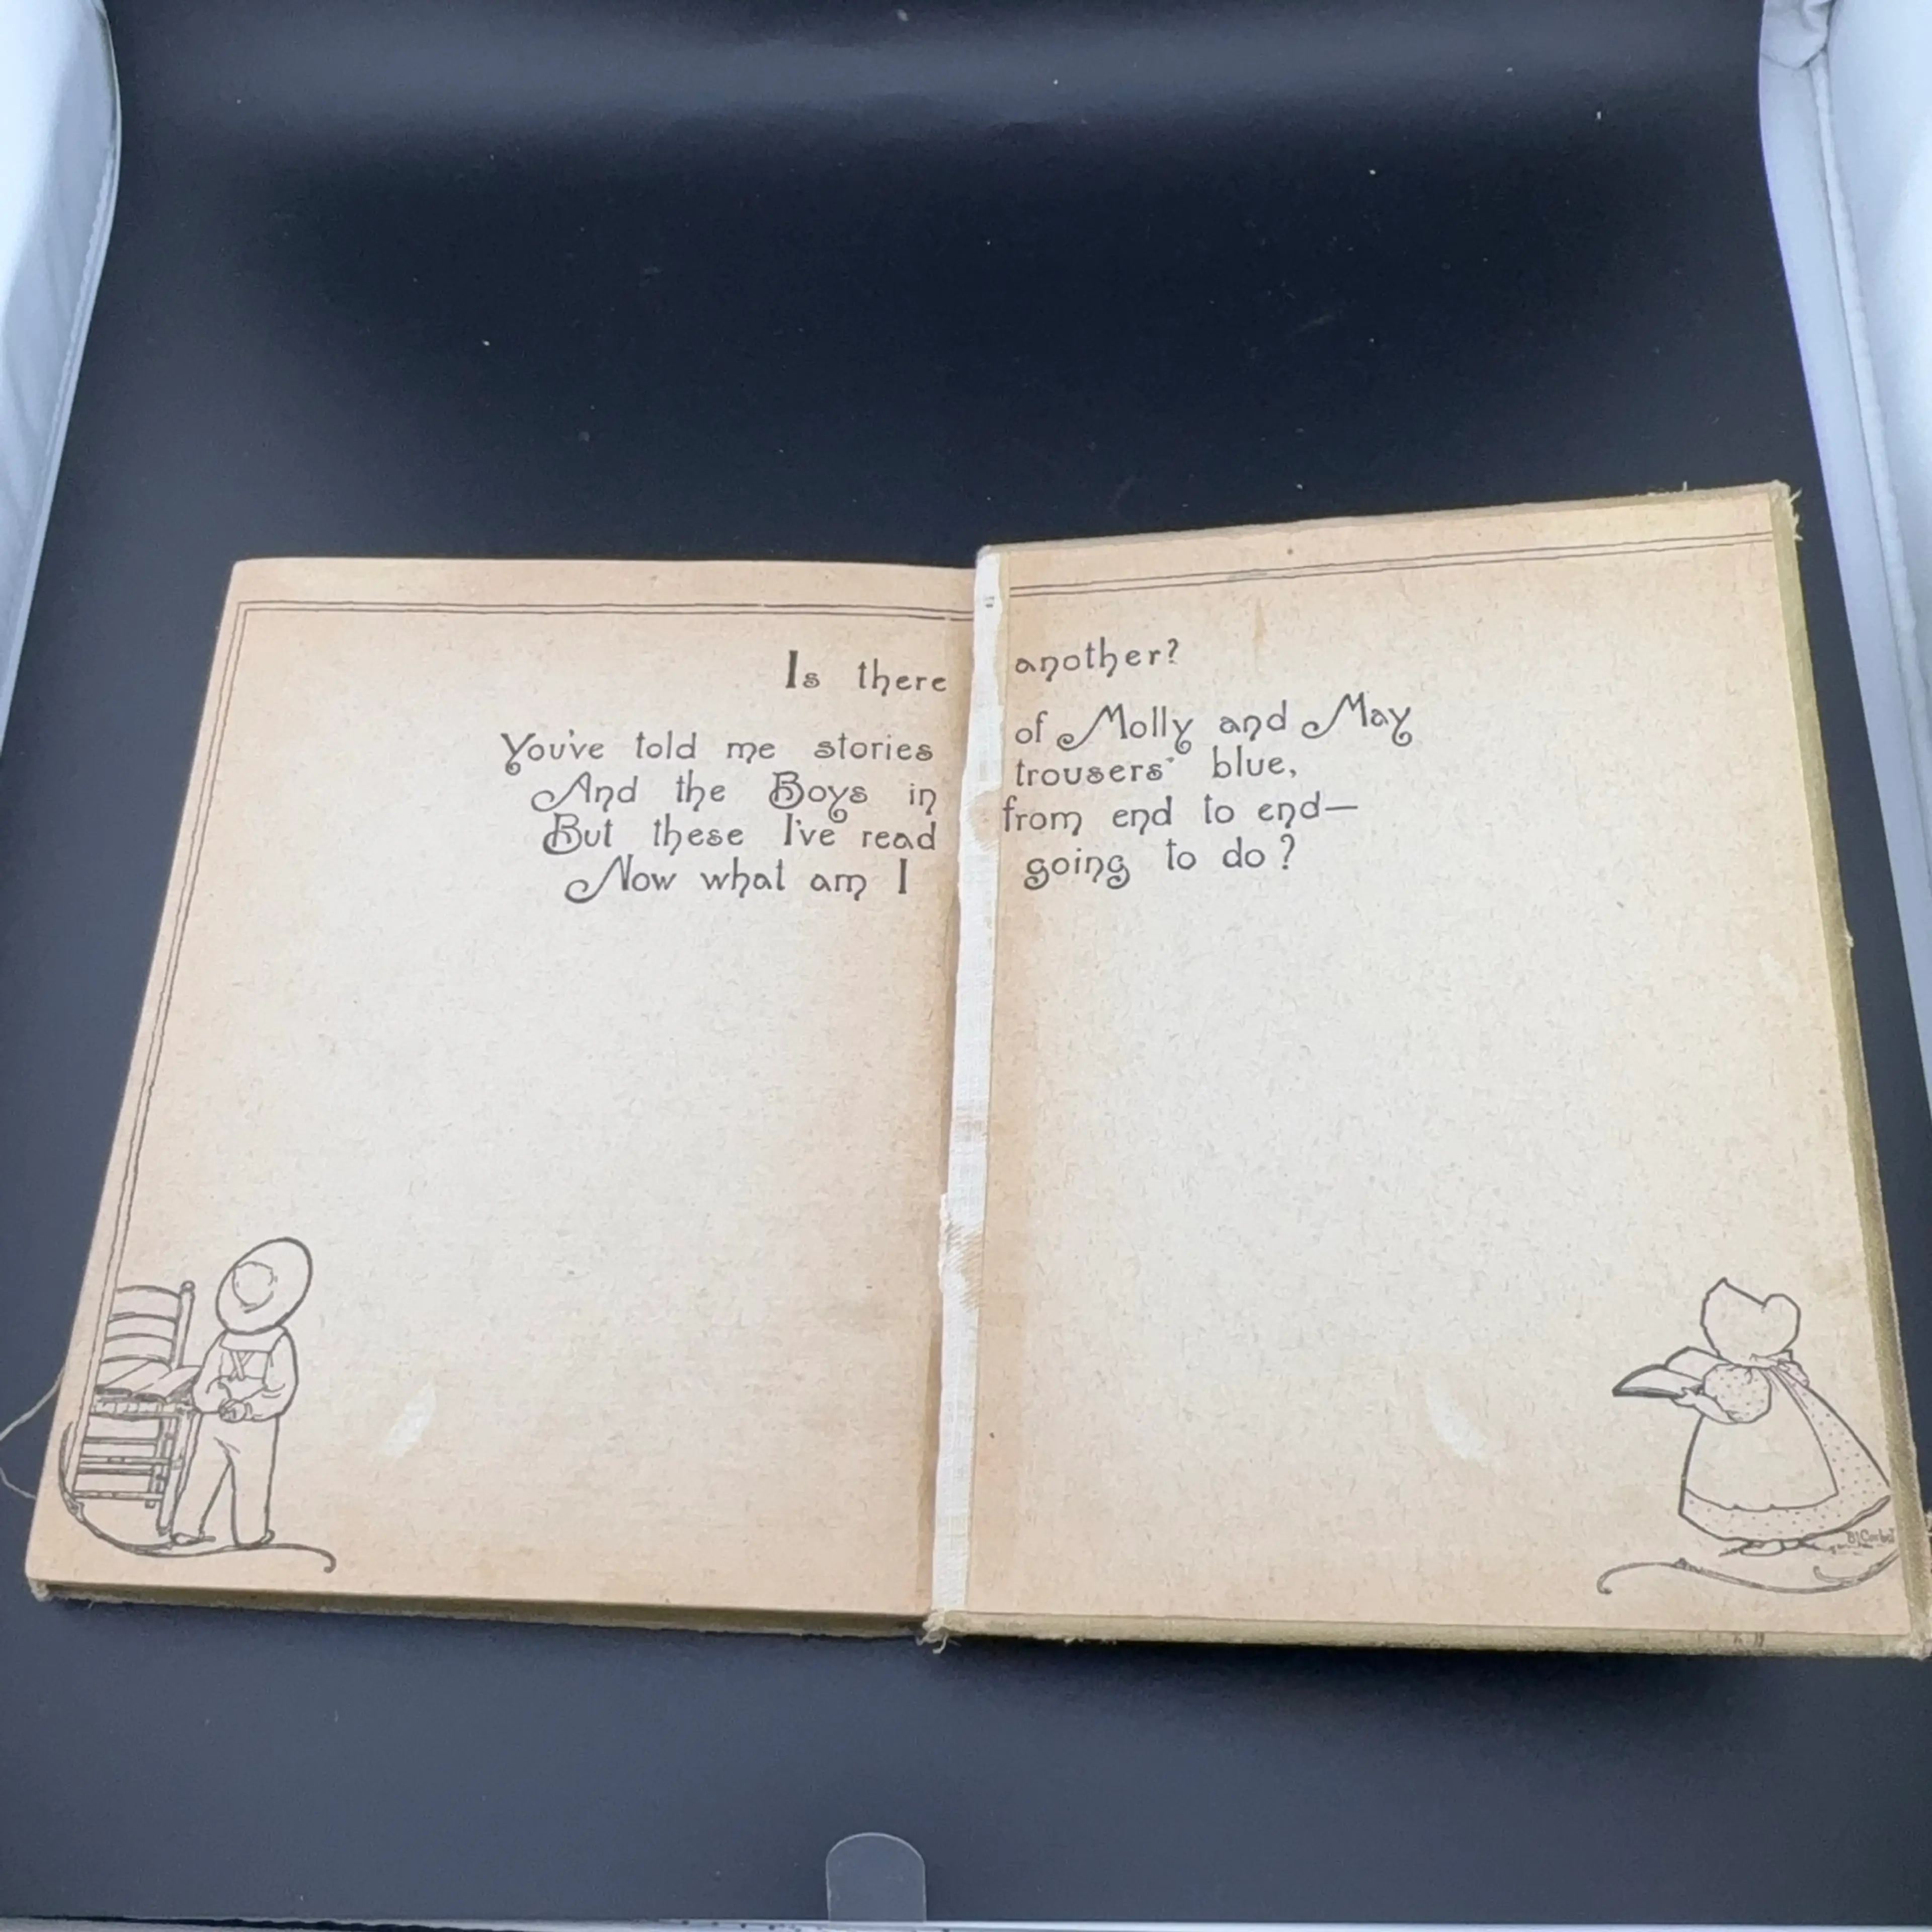 Is there another?
You've told me stories of Molly and May
And the Boys in trousers' blue,
But these I've read from end to end—
Now what am I going to do?